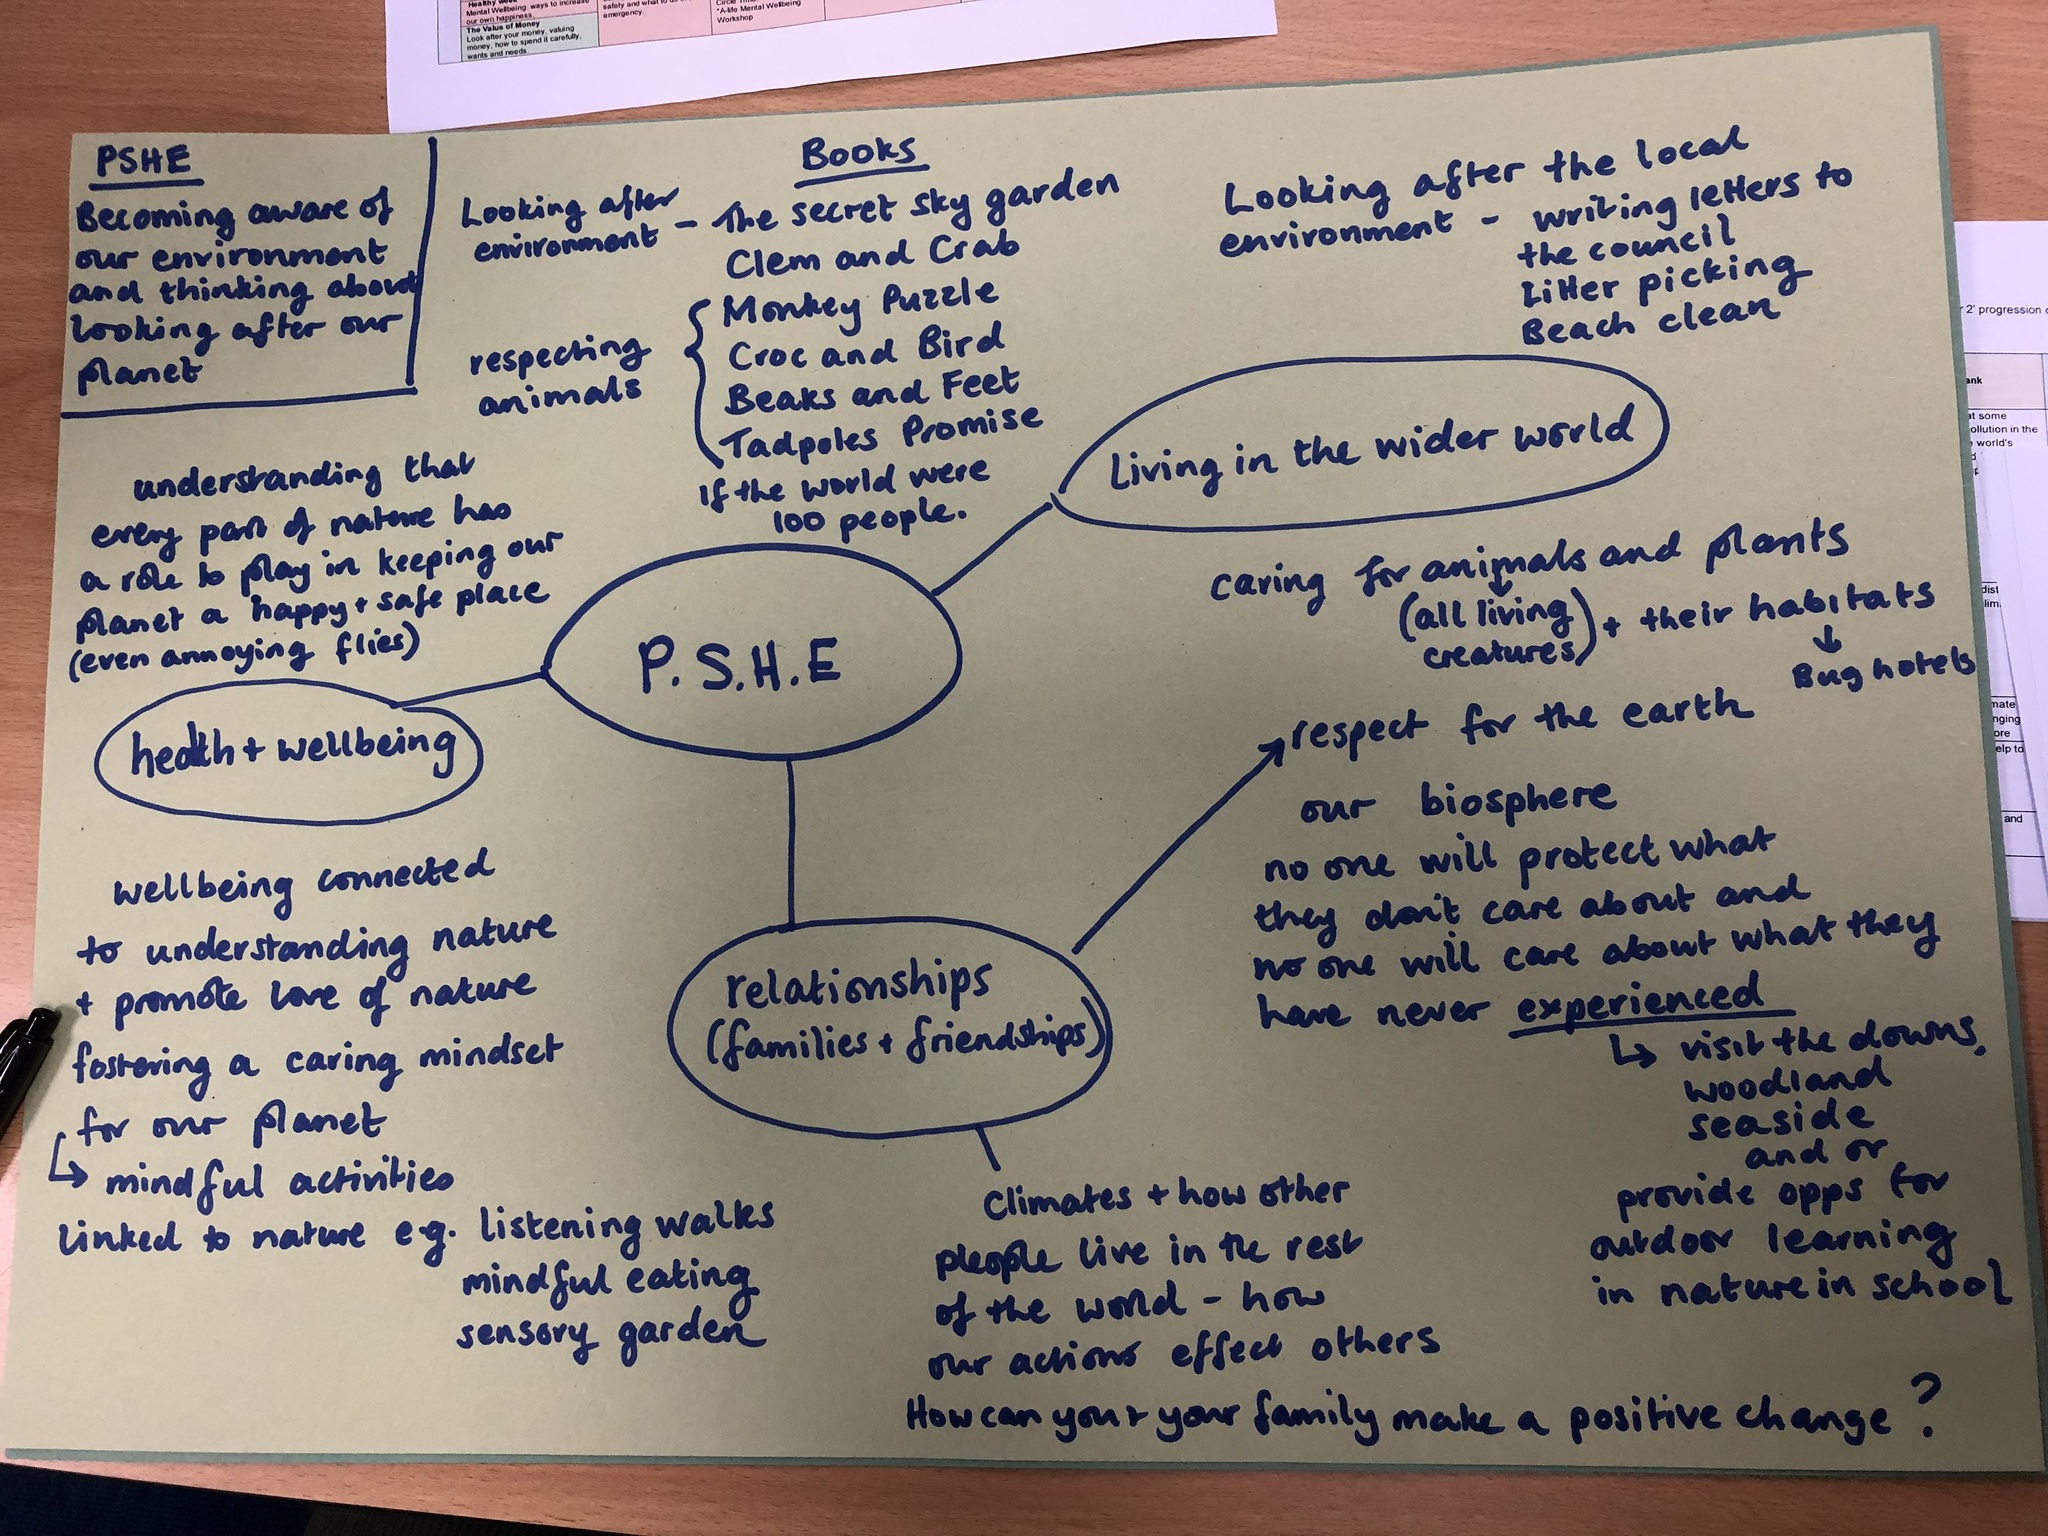 Healthy Week
Mental Wellbeing: ways to increase
our own happiness.
The Value of Money
Look after your money, valuing
money, how to spend it carefully,
wants and needs.
safety and what to do
emergency.
Circle
*A-life Mental Wellbeing
Workshop
PSHE
Becoming aware of
our environment
and thinking about
looking after our
planet
Books
Looking after
environment - The secret sky garden
Clem and Crab
respecting
animals
Monkey Puzzle
Croc and Bird
Beaks and Feet
Tadpoles Promise
If the world were
100 people.
Looking after the local
environment - writing letters to
the council
Litter picking
Beach clean
living in the wider world
understanding that
every part of nature has
a role to play in keeping our
planet a happy + safe place
(even annoying flies)
P.S.H.E
caring for animals and plants
(all living
creatures) + their habitats
Bug hotels
health + wellbeing
respect for the earth
our biosphere
no one will protect what
they don't care about and
no one will care about what they
have never experienced
visit the downs,
woodland
seaside
and or
provide opps for
outdoor learning
in nature in school
wellbeing connected
to understanding nature
+ promote love of nature
fostering a caring mindset
for our planet
mindful activities
linked to nature e.g. listening walks
mindful eating
sensory garden
relationships
(families + friendships)
Climates + how other
pleople live in the rest
of the world - how
our actions effect others
How can you + your family make a positive change?
2' progression
at some
ollution in the
world's
mate
nging
ore
elp to
and